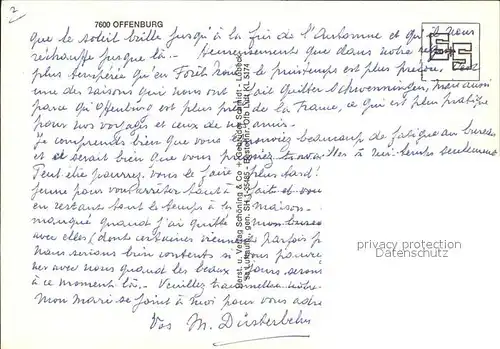 2
7600 OFFENBURG
que le soleil brille jusqu'à la fin de l'Automne et qu'il nous
réchauffe jusque là.. Heureusement que dans notre
plus tempérée qu'en Forêt Noire le printemps est plus précoce, c'est
une des raisons qui nous ont fait quitter Schwenningen, mais aussi
parce qu'Offenburg est plus près de la France, ce qui est plus pratique
pour nos voyages et ceux de nos amis.
Je comprends bien que vous éprouviez beaucoup de fatigue au bureau
et ce serait bien que vous puissiez travailler à mi-temps seulement
Peut être pourrez-vous le faire plus tard!
jeune pour vous arrêter tout à fait et
en restant tout le temps à la maison.
manqué quand j'ai quitté mon bureau
avec elles (dont certaines viennent parfois
nous serions bien contents si vous pouviez
avec nous quand les beaux jours seront
à ce moment là.- Veuillez transmettre notre
Mon Mari se joint à moi pour vous
Vos M. Düsterbehn
Herst. u. Verlag Schöning & Co + Gebrüder Schmidt - Lübeck
privacy protection
Datenschutz